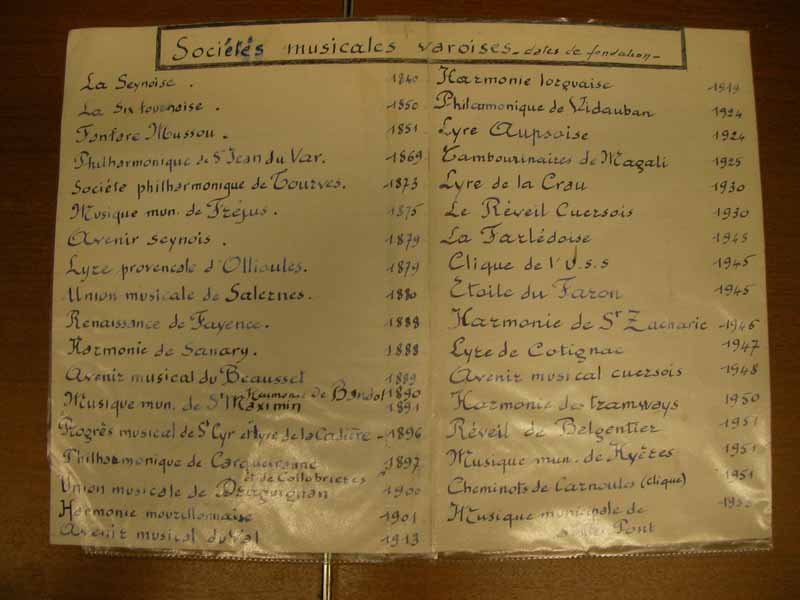 Sociétés musicales varoises - dates de fondation -
La Seynoise . 1840
La Six fournaise . 1850
Fanfare Mussou . 1851
Philharmonique de St Jean du Var. 1869
Société philharmonique de Tourves. 1873
Musique mun. de Fréjus . 1875
Avenir seynois . 1879
Lyre provençale d'Ollioules. 1879
Union musicale de Salernes. 1880
Renaissance de Fayence. 1888
Harmonie de Sanary. 1888
Avenir musical du Beausset 1889
Harmonie de Bandol 1890
Musique mun. de St Maximin 1891
Progrès musical de St Cyr et lyre de la Cadière - 1896
Philharmonique de Carqueiranne 1897
et de Collobrières
Union musicale de Draguignan 1900
Harmonie mourillonnaise 1901
Avenir musical du Val 1913
Harmonie lorguaise 1919
Philarmonique de Vidauban 1924
Lyre Aupsoise 1924
Tambourinaires de Magali 1925
Lyre de la Crau 1930
Le Réveil Cuersois 1930
La Farlédoise 1945
Clique de l'U.s.s 1945
Etoile du Faron 1945
Harmonie de St Zacharie 1946
Lyre de Cotignac 1947
Avenir musical cuersois 1948
Harmonie des tramways 1950
Réveil de Belgentier 1951
Musique mun. de Hyères 1951
Cheminots de Carnoules (clique) 1951
Musique municipale de
Pont